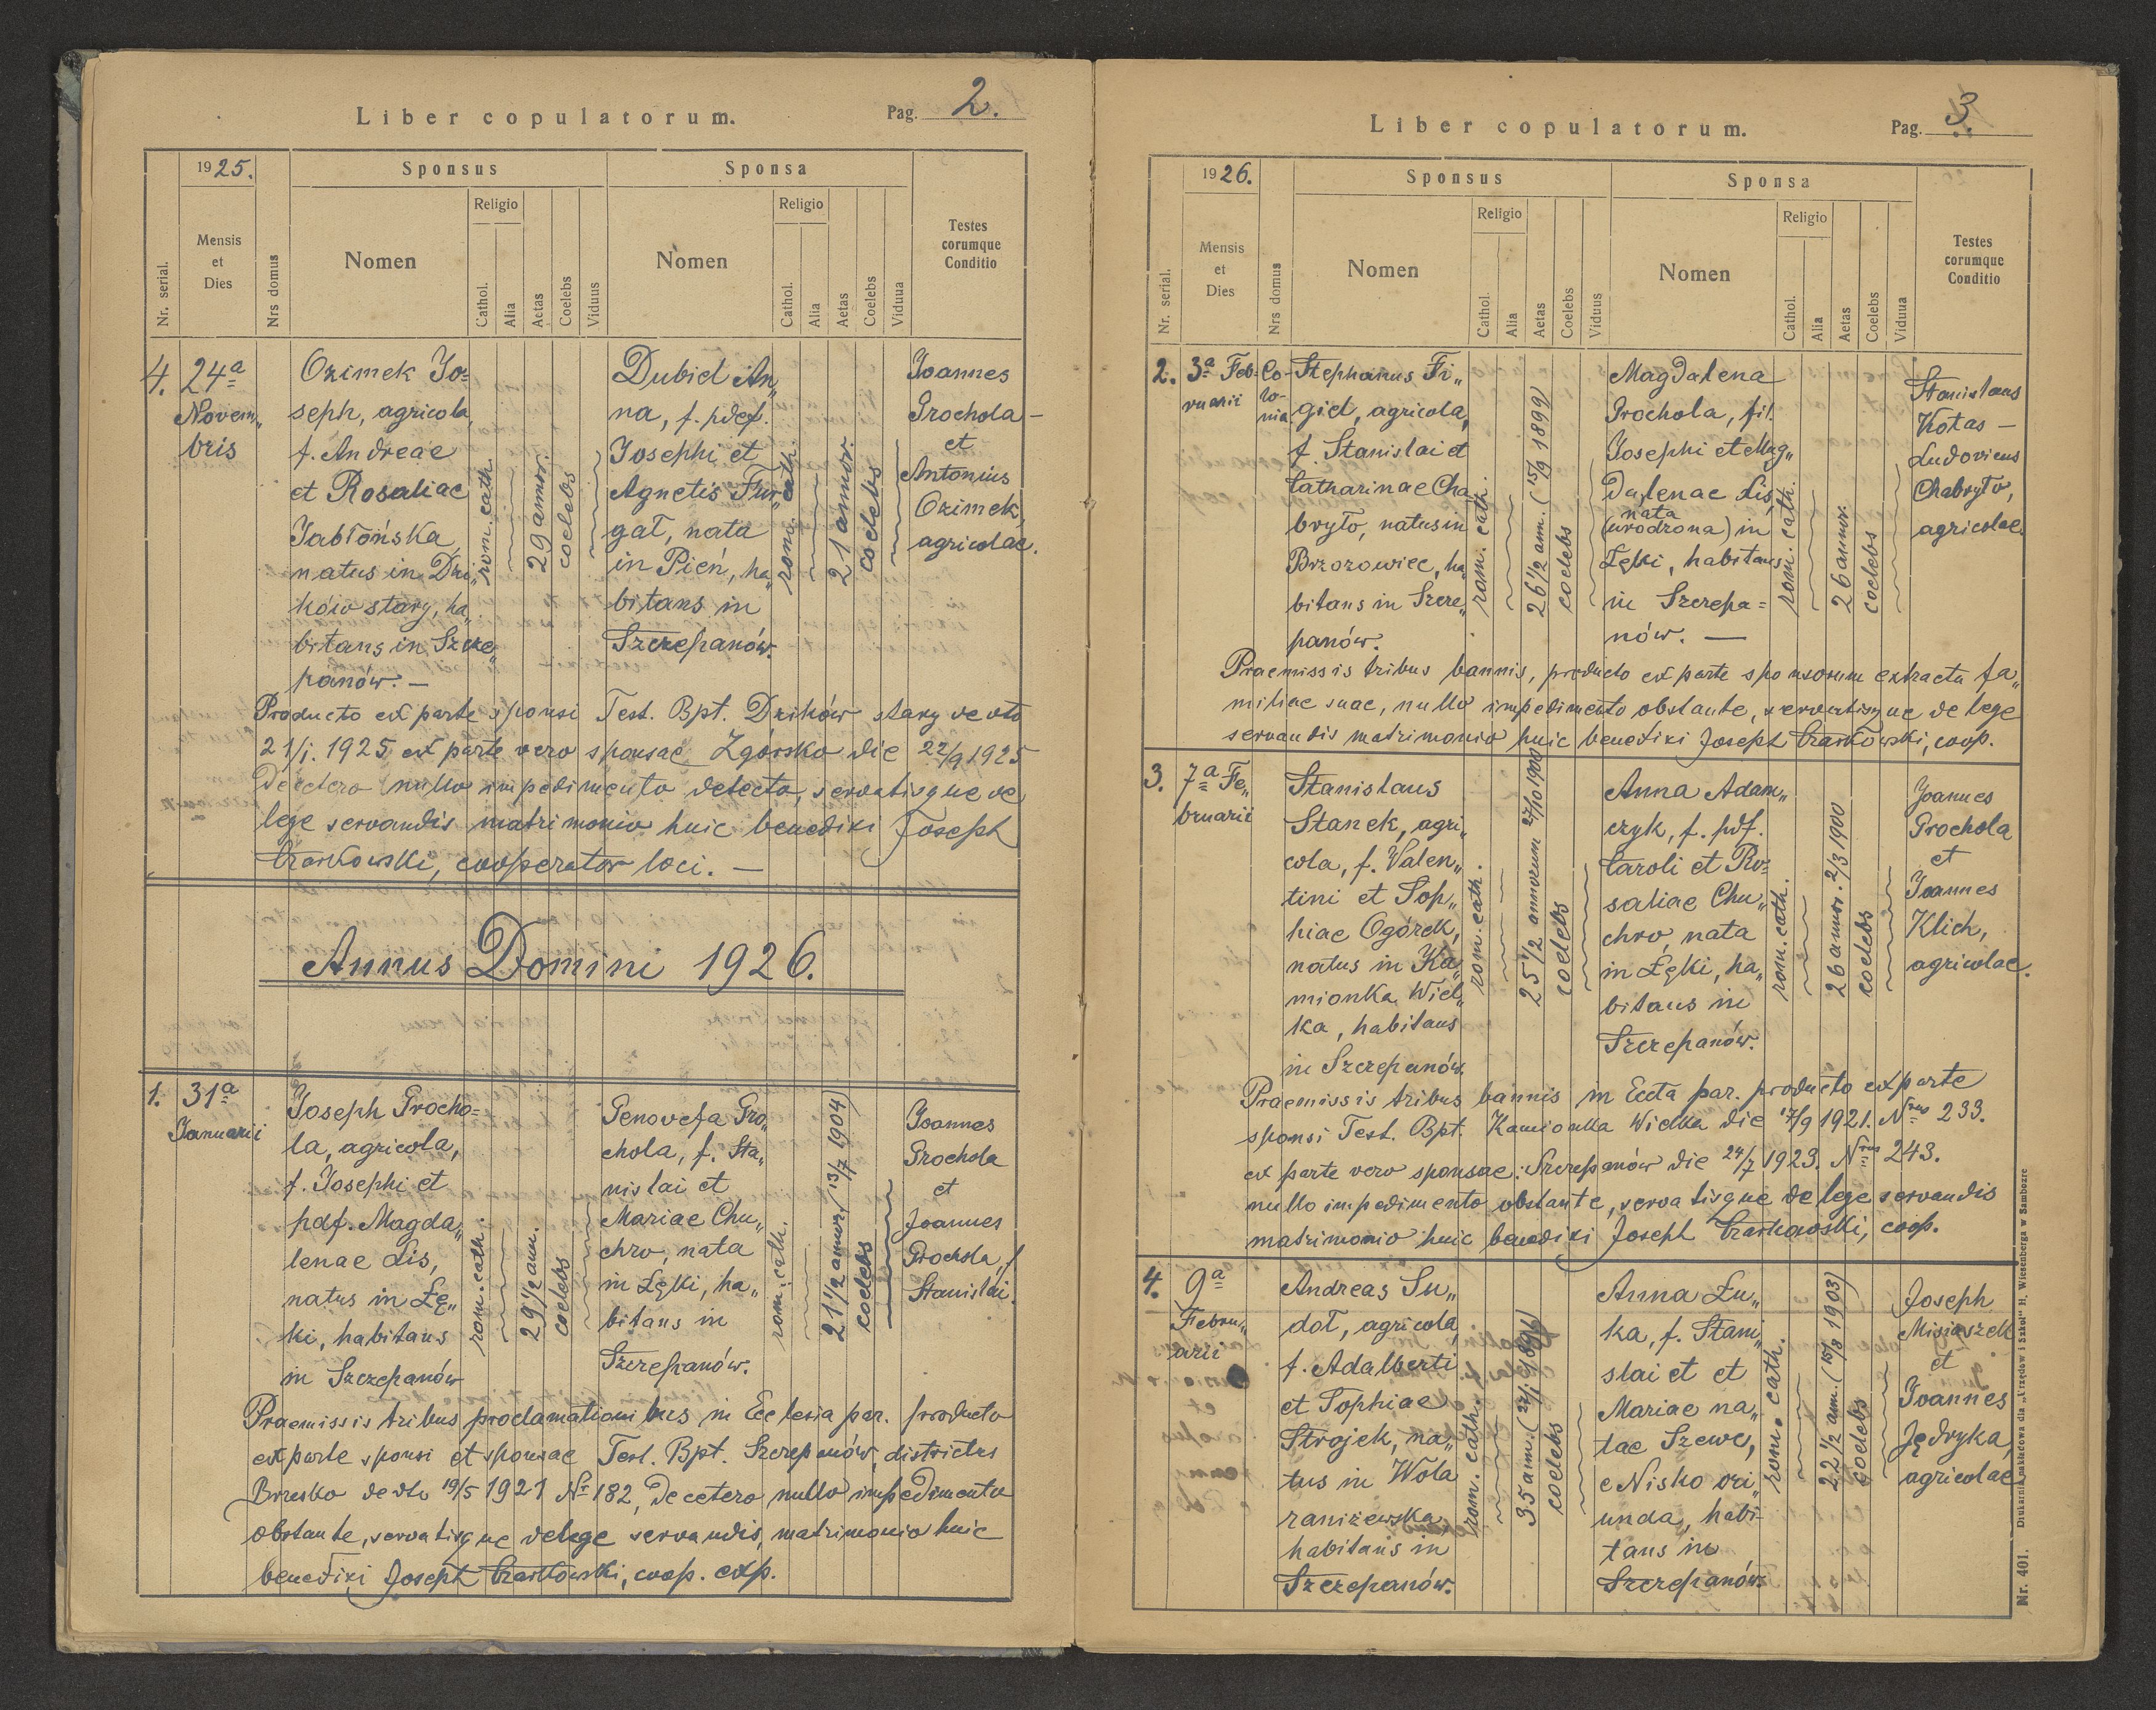 Liber copulatorum.
Pag. 2.
1925.
Sponsus
Sponsa
Nr. serial.
Mensis
et
Dies
Nrs domus
Nomen
Religio
Cathol.
Alia
Aetas
Coelebs
Viduus
Nomen
Religio
Cathol.
Alia
Aetas
Coelebs
Vidua
Testes
eorumque
Conditio
4. 24a
Novem„
bris
Ozimek Jo=
seph, agricola,
f. Andreae
et Rosaliae
Jabłońska,
natus in Dzi„
ków stary, ha„
bitans in Szcze„
panów. —
rom. cath.
29 annor.
coelebs
Dubiel An„
na, f. pdef.
Josephi et
Agnetis Fur„
gał, nata
in Pień, ha„
bitans in
Szczepanów.
rom. cath.
21 annor.
coelebs
Joannes
Prochola —
et
Antonius
Ozimek,
agricolae.
Producto ex parte sponsi Test. Bpt. Dzików stary de dto
21/1. 1925 ex parte vero sponsae Zgórsko die 22/9 1925
De cetero nullo impedimento detecto, servatisque de
lege servandis matrimonio huic benedixi Joseph
Czarkowski, cooperator loci. —
Annus Domini 1926.
1. 31a
Januarii
Joseph Procho=
la, agricola,
f. Josephi et
pdf. Magda„
lenae Lis,
natus in Łę„
ki, habitans
in Szczepanów
rom. cath.
29 1/2 ann.
coelebs
Genovefa Pro„
chola, f. Sta„
nislai et
Mariae Chu„
chro, nata
in Łęki, ha„
bitans in
Szczepanów.
rom. cath.
21 1/2 annor. (13/7 1904)
coelebs
Joannes
Prochola
et
Joannes
Prochola, f.
Stanislai.
Praemissis tribus proclamationibus in Eclesia par. producto
ex parte sponsi et sponsae Test. Bpt. Szczepanów, districtus
Brzesko de dto 19/5 1921 Nr 182, De cetero nullo impedimento
obstante, servatisque de lege servandis, matrimonio huic
benedixi Joseph Czarkowski, coop. exp.
Liber copulatorum.
Pag. 3.
1926.
Sponsus
Sponsa
Nr. serial.
Mensis
et
Dies
Nrs domus
Nomen
Religio
Cathol.
Alia
Aetas
Coelebs
Viduus
Nomen
Religio
Cathol.
Alia
Aetas
Coelebs
Viduua
Testes
corumque
Conditio
2. 3a Feb-
ruarii
Co-
lo-
nia
Stephanus Fi„
giel, agricola,
f. Stanislai et
Catharinae Cha„
bryło, natus in
Brzozowiec, ha„
bitans in Szcze„
panów.
rom. cath.
26 1/2 ann. (15/9 1899)
coelebs
Magdalena
Prochola, fil.
Josephi et Mag„
dalenae Lis,
nata
(urodzona) in
Łęki, habitans
in Szczepa=
nów. —
rom. cath.
26 annor.
coelebs
Stanislaus
Kotas —
Ludovicus
Chabryło,
agricolae.
Praemissis tribus bannis, producto ex parte sponsorum extractu fa„
miliae suae, nullo impedimento obstante, servatisque de lege
servandis matrimonio huic benedixi Joseph Czarkowski, coop.
3. 7a Fe„
bruarii
Stanislaus
Stanek, agri„
cola, f. Valen„
tini et Sop„
hiae Ogórek,
natus in Ka„
mionka Wiel„
ka, habitans
in Szczepanów
rom. cath.
25 1/2 annorum 27/10 1900
coelebs
Anna Adam„
czyk, f. pdf.
Caroli et Ro=
saliae Chu„
chro, nata
in Łęki, ha„
bitans in
Szczepanów.
rom. cath.
26 annor. 2/3 1900
coelebs
Joannes
Prochola
et
Joannes
Klich,
agricolae.
Praemissis tribus bannis in Eccta par. producto ex parte
sponsi Test. Bpt. Kamionka Wielka die 17/9 1921. Nrus 233.
ex parte vero sponsae: Szczepanów die 24/7 1923. Nrus 243.
nullo impedimento obstante, servatisque de lege servandis
matrimonio huic benedixi Joseph Czarkowski, coop.
4. 9a
Febru„
arii
Andreas Su„
doł, agricola,
f. Adalberti
et Sophiae
Strojek, na„
tus in Wola
raniżewska,
habitans in
Szczepanów.
rom. cath.
35 ann. (1896)
coelebs
Anna Łu„
ka, f. Stani„
slai et et
Mariae na„
tae Szewc,
e Nisko ori„
unda, habi-
tans in
Szczepanów.
rom. cath.
22 1/2 ann. (15/8 1903)
coelebs
Joseph
Misiaszek
et
Joannes
Jędryka,
agricolae
Nr. 401. Drukarnia nakładowa dla „Urzędów i Szkół" H. Wiesenberga w Samborze